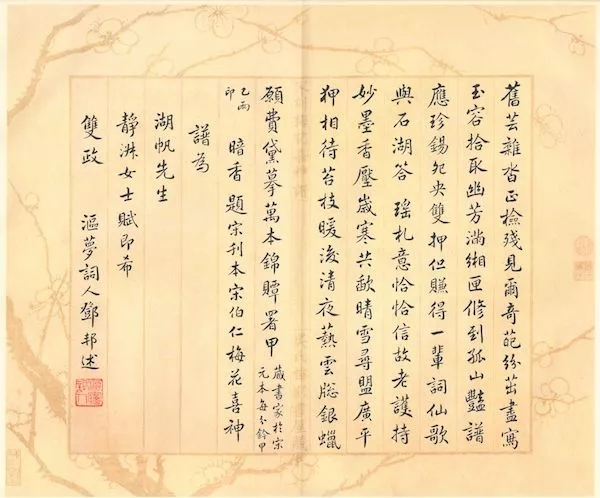 舊芸雜沓正檢殘見爾奇葩紛茁畫寫
玉容拾取幽芳滿緗匣修到孤山豔譜
應珍錫夗央雙押但賺得一輩詞仙歌
與石湖答 瑤札意恰恰信故老護持
妙墨香壓歲寒共歃晴雪尋盟廣平
狎相待苔枝暖後清夜爇雲牕銀蠟
願費黛摹萬本錦贉署甲 藏書家於宋
元本每分鈐甲
乙丙
印
暗香 題宋刊本宋伯仁梅花喜神
譜為
湖帆先生
靜淑女士賦即希
雙政 漚夢詞人鄧邦述